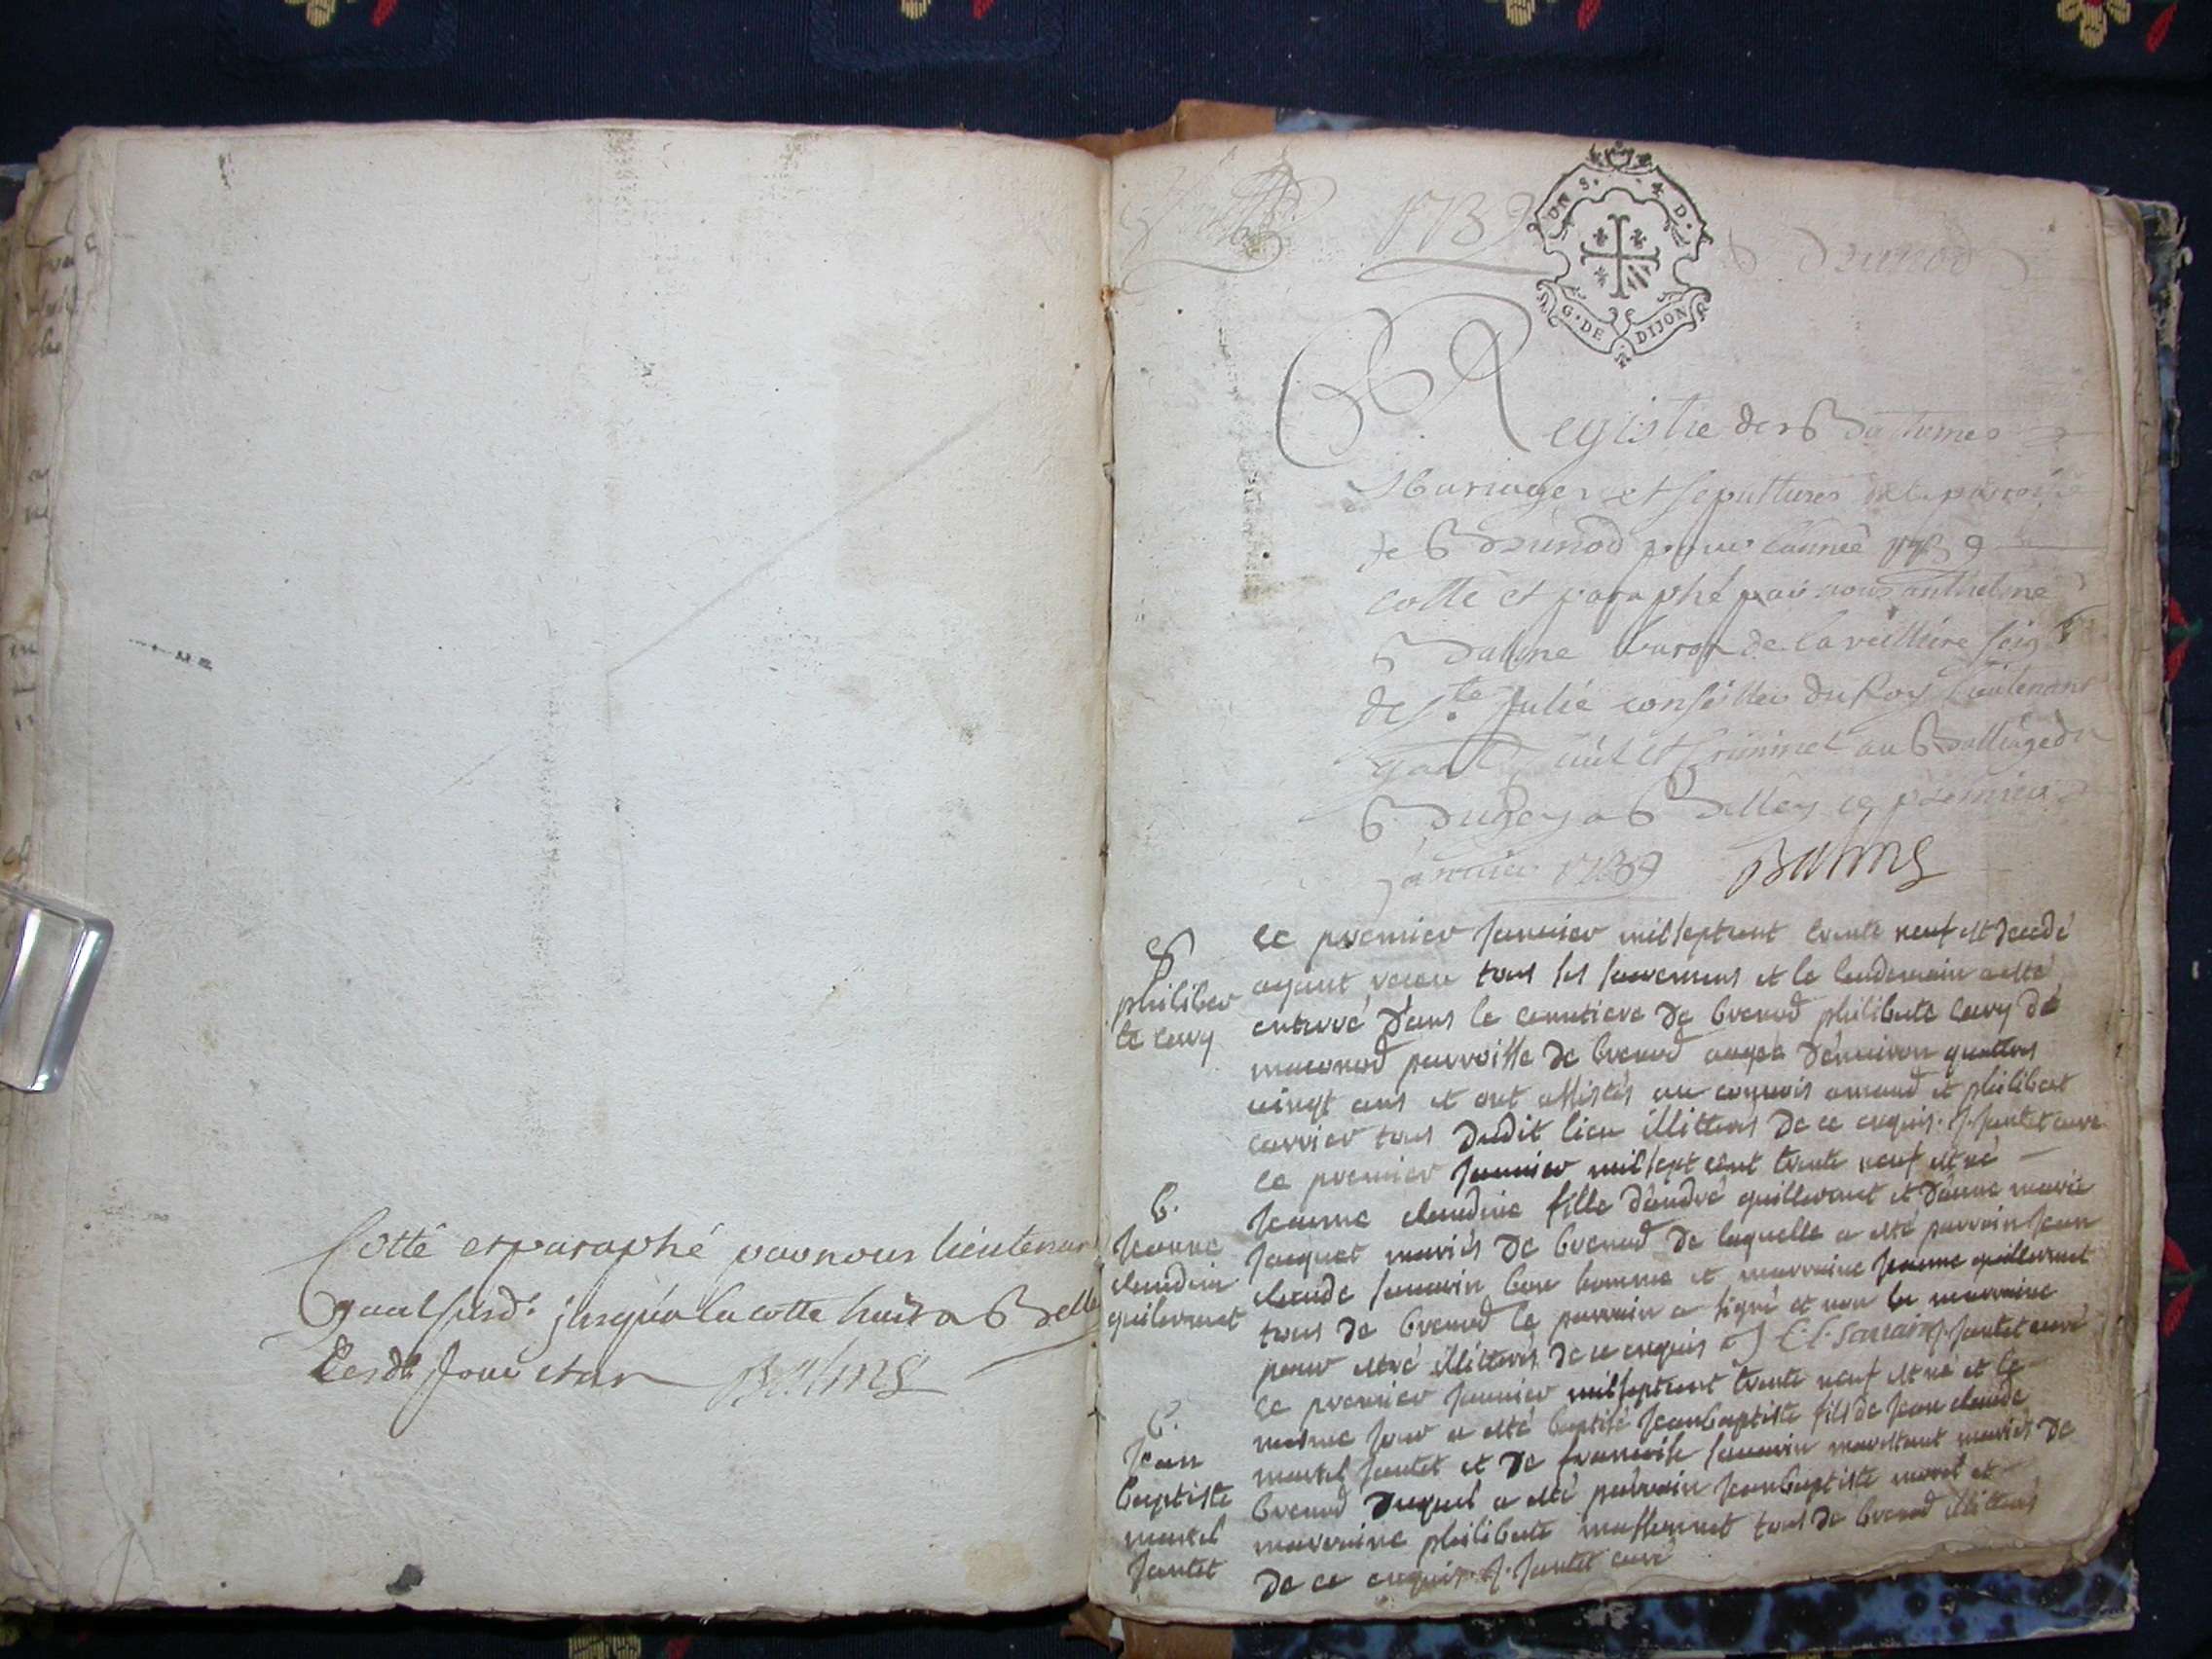 Cotté et paraphé par nous lieutenant
gnal susd. jusqu'a la cotte huit a Belley
Lesdt jour et an Balme
1739
UN S. 4 D.
G. DE DIJON
Brenod
Registre des Batêmes
Mariages et sepultures de la paroisse
de Brenod pour l'année 1739
cotté et paraphé par nous anthelme
Balme baron de la veilliere seigr
de ste Julie conseiller du Roy Lieutenant
gnal Civil et Criminel au Balliage du
Bugey a Belley ce premier
janvier 1739 Balme
S
philiber
te cary
le premier janvier mil sept cent trente neuf est decedé
ayant receu tous les sacremens et le lendemain a esté
enterré dans le cemetiere de brenod philiberte cary de
maconod parroisse de brenod agée d'environ quattre
vingt ans et ont assistés au convois armand et philibert
carrier tous dudit lieu illitterés de ce enquis. J. Jantet curé
b.
Jeanne
claudine
guilermet
le premier janvier mil sept cent trente neuf est né
jeanne claudine fille d'andré guillermet et d'anne marie
jaquet mariés de brenod de laquelle a esté parrain jean
claude savarin bon homme et marraine jeanne guillermet
tous de brenod le parrain a signé et non la marraine
pour estre illitterés de ce enquis J. C. Savarin J. Jantet curé
b.
jean
baptiste
martel
jantet
le premier janvier mil sept cent trente neuf est né et le
mesme jour a esté baptisé jean baptiste fils de jean claude
martel jantet et de françoise savarin mariés de
brenod duquel a esté parrain jean baptiste morel et
marraine philiberte massonnet tous de brenod illitterés
de ce enquis. J. Jantet curé